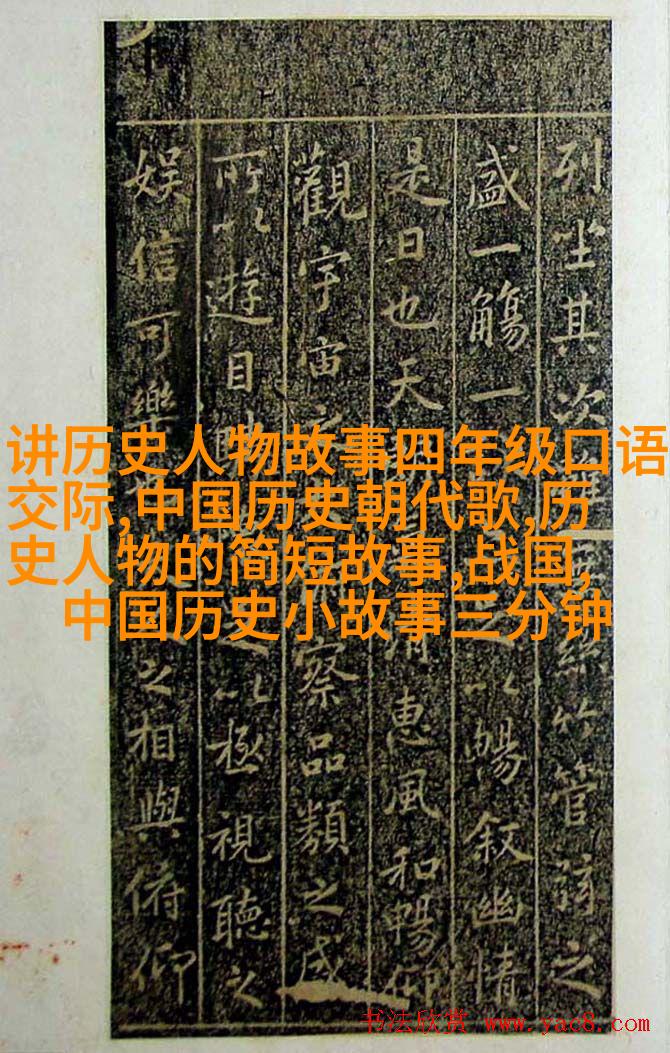 讲历史人物故事四年级口语
交际,中国历史朝代歌,历
史人物的简短故事,战国,
中国历史小故事三分钟
列坐其次絲竹管弦之
盛一觴一以暢叙幽情
是日也天清惠風和暢仰
觀宇宙之察品類之盛
所以遊目以極視聽之
娱信可樂之相與俯仰
书法欣赏 www.yac8.com